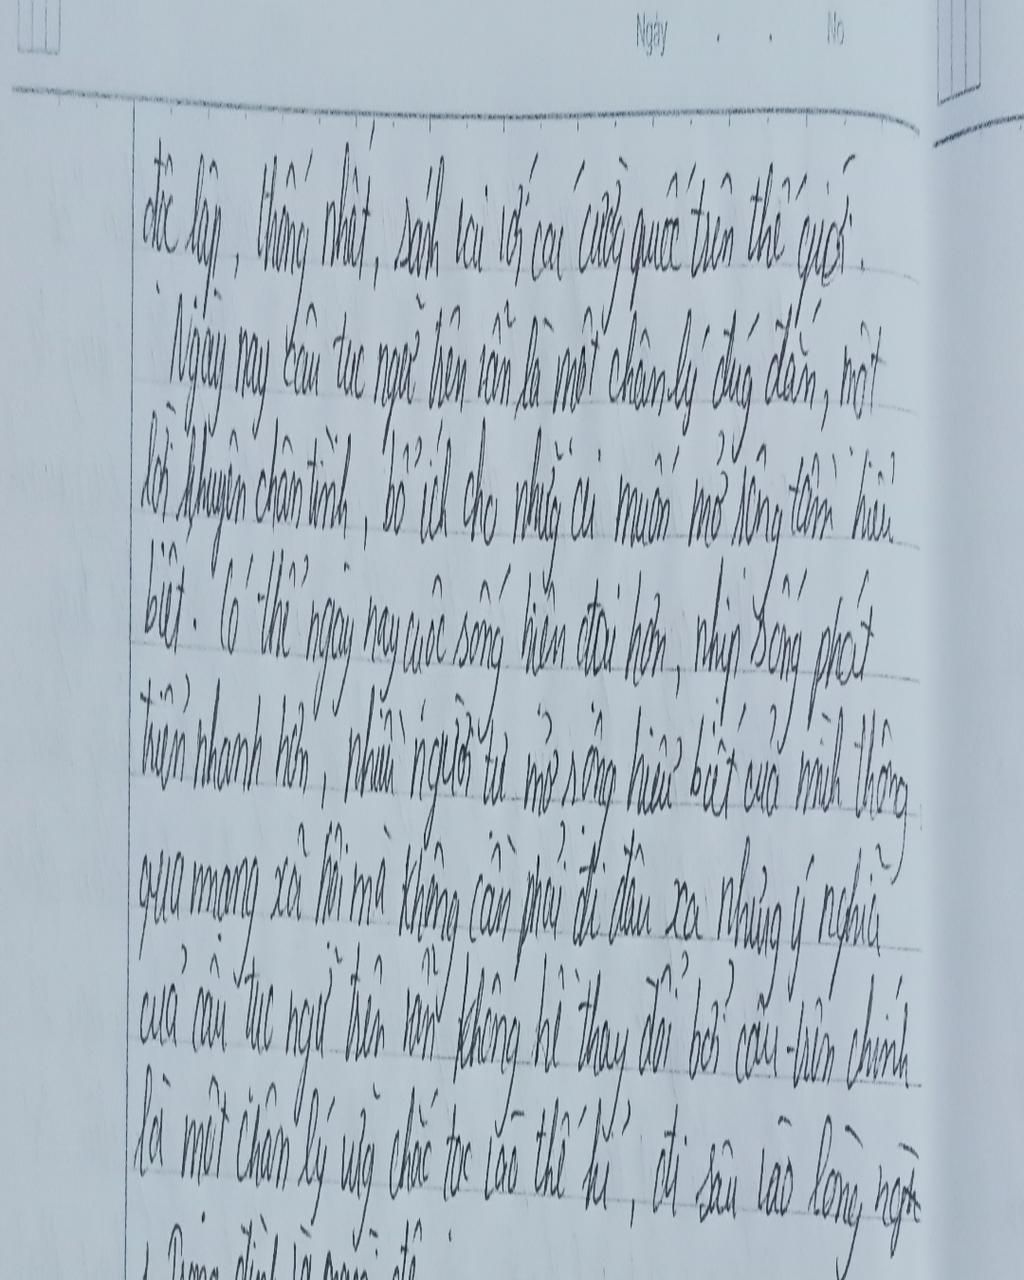 Ngày . . No
độc lập, thống nhất, sánh vai với các cường quốc trên thế giới.
Ngày nay câu tục ngữ trên vẫn là một chân lý đúng đắn, một
lời khuyên chân tình, bổ ích cho những ai muốn mở rộng tầm hiểu
biết. Có thể ngày nay cuộc sống hiện đại hơn, nhịp sống phát
triển nhanh hơn, nhiều người tự mở rộng hiểu biết của mình thông
qua mạng xã hội mà không cần phải đi đâu xa nhưng ý nghĩa
của câu tục ngữ trên vẫn không hề thay đổi bởi câu trên chính
là một chân lý vững chắc tạc vào thế kỉ, đi sâu vào lòng người